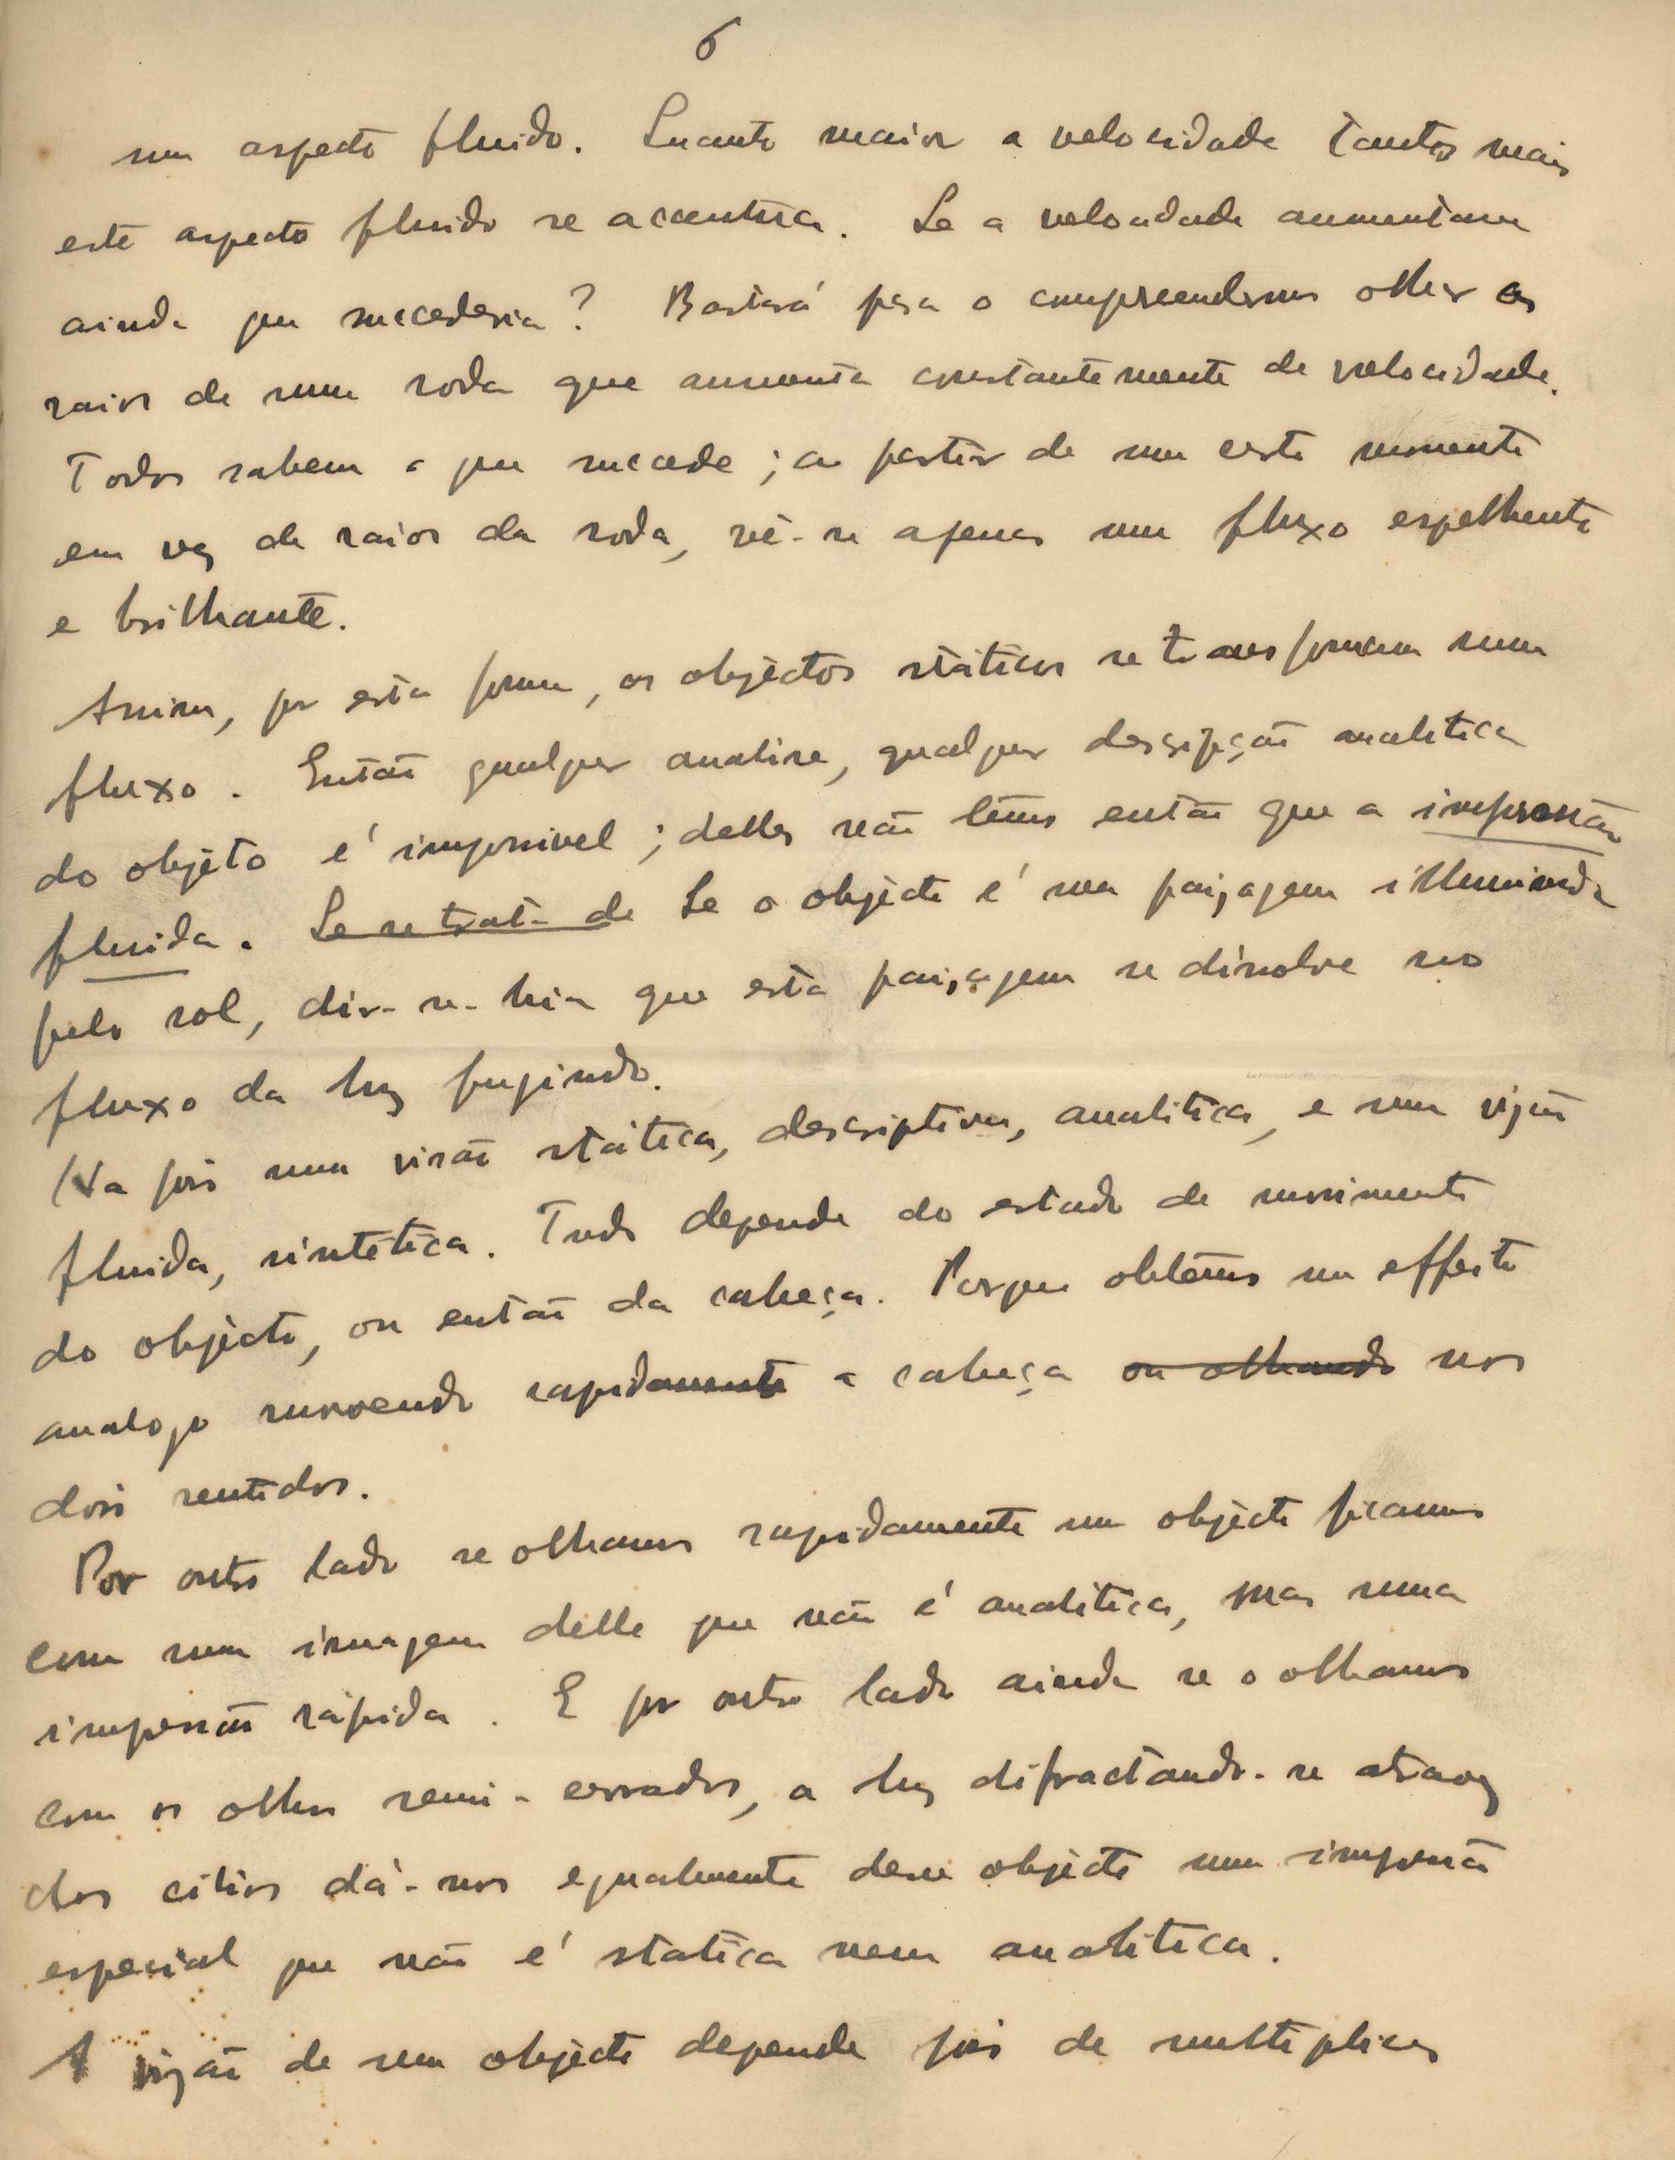 6
um aspecto fluido. Quanto maior a velocidade tanto mais
este aspecto fluido se accentúa. Se a velocidade aumentasse
ainda que succederia? Bastará para o comprehendermos olhar os
raios de uma roda que aumenta constantemente de velocidade.
Todos sabem o que succede; a partir de um certo momento
em vez de raios da roda, vê-se apenas um fluxo espelhente
e brilhante.
Assim, por esta forma, os objectos státicos se transformam num
fluxo. Então qualquer analise, qualquer descripção analitica
do objéto é impossivel; delles não têmos então que a impressão
fluida. Se se trata de Se o objécto é uma paizagem illuminada
pelo sol, dir-se-hia que esta paizagem se dissolve no
fluxo da luz fugindo.
Ha pois uma visão státíca, descriptiva, analitica, e uma vizão
fluida, sintética. Tudo depende do estado de movimento
do objécto, ou então da cabeça. Porque obtêmos um effeito
analogo movendo rapidamente a cabeça ou olhando nos
dois sentidos.
Por outro lado se olhamos rapidamente um objécto ficamos
com uma imagem delle que não é analitica, mas uma
impressão rápida. E por outro lado ainda se o olhamos
com os olhos semi-cerrados, a luz difractando-se atravez
dos cilios dá-nos egualmente desse objécto uma impressão
especial que não é statica nem analitica.
A vizão de um objécto depende pois de multiplices